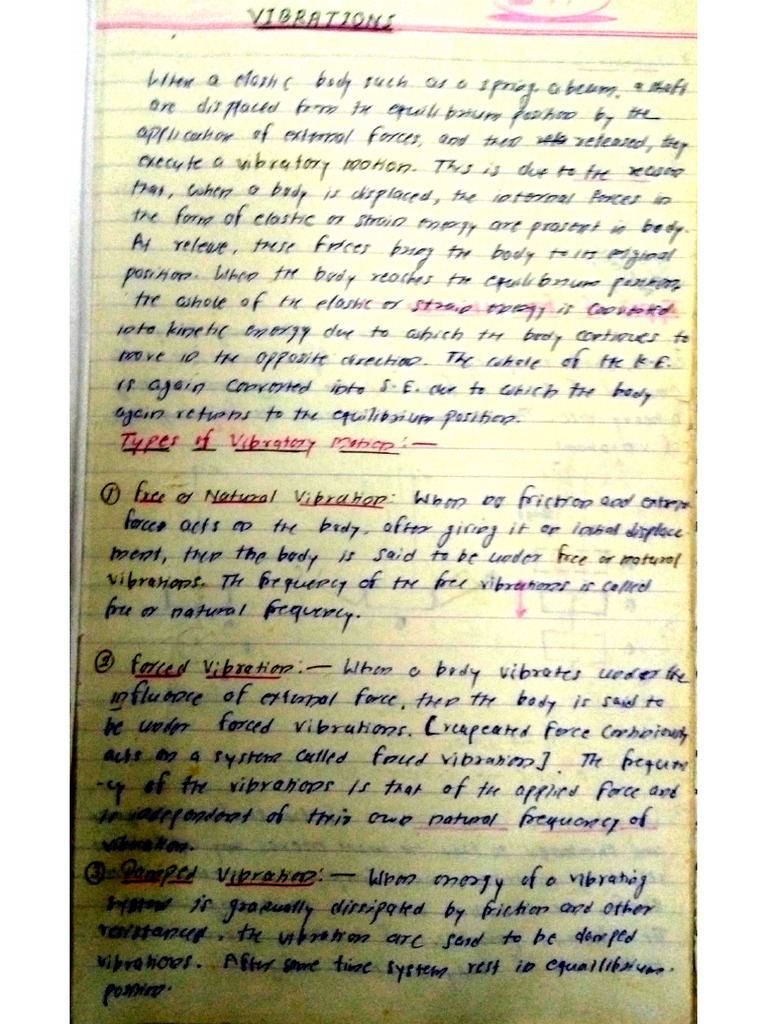 VIBRATIONS
When a elastic body such as a spring, a beam, a shaft
are displaced from the equilibrium position by the
application of external forces, and then released, they
execute a vibratory motion. This is due to the reason
that, when a body is displaced, the internal forces in
the form of elastic or strain energy are present in body.
At release, these forces bring the body to its original
position. When the body reaches the equilibrium position,
the whole of the elastic or strain energy is converted
into kinetic energy due to which the body continues to
move in the opposite direction. The whole of the K.E.
is again converted into S.E. due to which the body
again returns to the equilibrium position.
Types of Vibratory Motion:—
① Free or Natural Vibration: When no friction and
forces acts on the body, after giving it an initial displace
ment, then the body is said to be under free or natural
vibrations. The frequency of the free vibrations is called
free or natural frequency.
② Forced Vibration:— When a body vibrates under the
influence of external force, then the body is said to
be under forced vibrations. [reapeated force continiously
acts on a system called forced vibration]. The frequen
-cy of the vibrations is that of the applied force and
is independent of their own natural frequency of
vibration.
③ Damped Vibration:— When energy of a vibrating
system is gradually dissipated by friction and other
resistanced, the vibration are said to be damped
vibrations. After some time system rest in equailibrium
position.